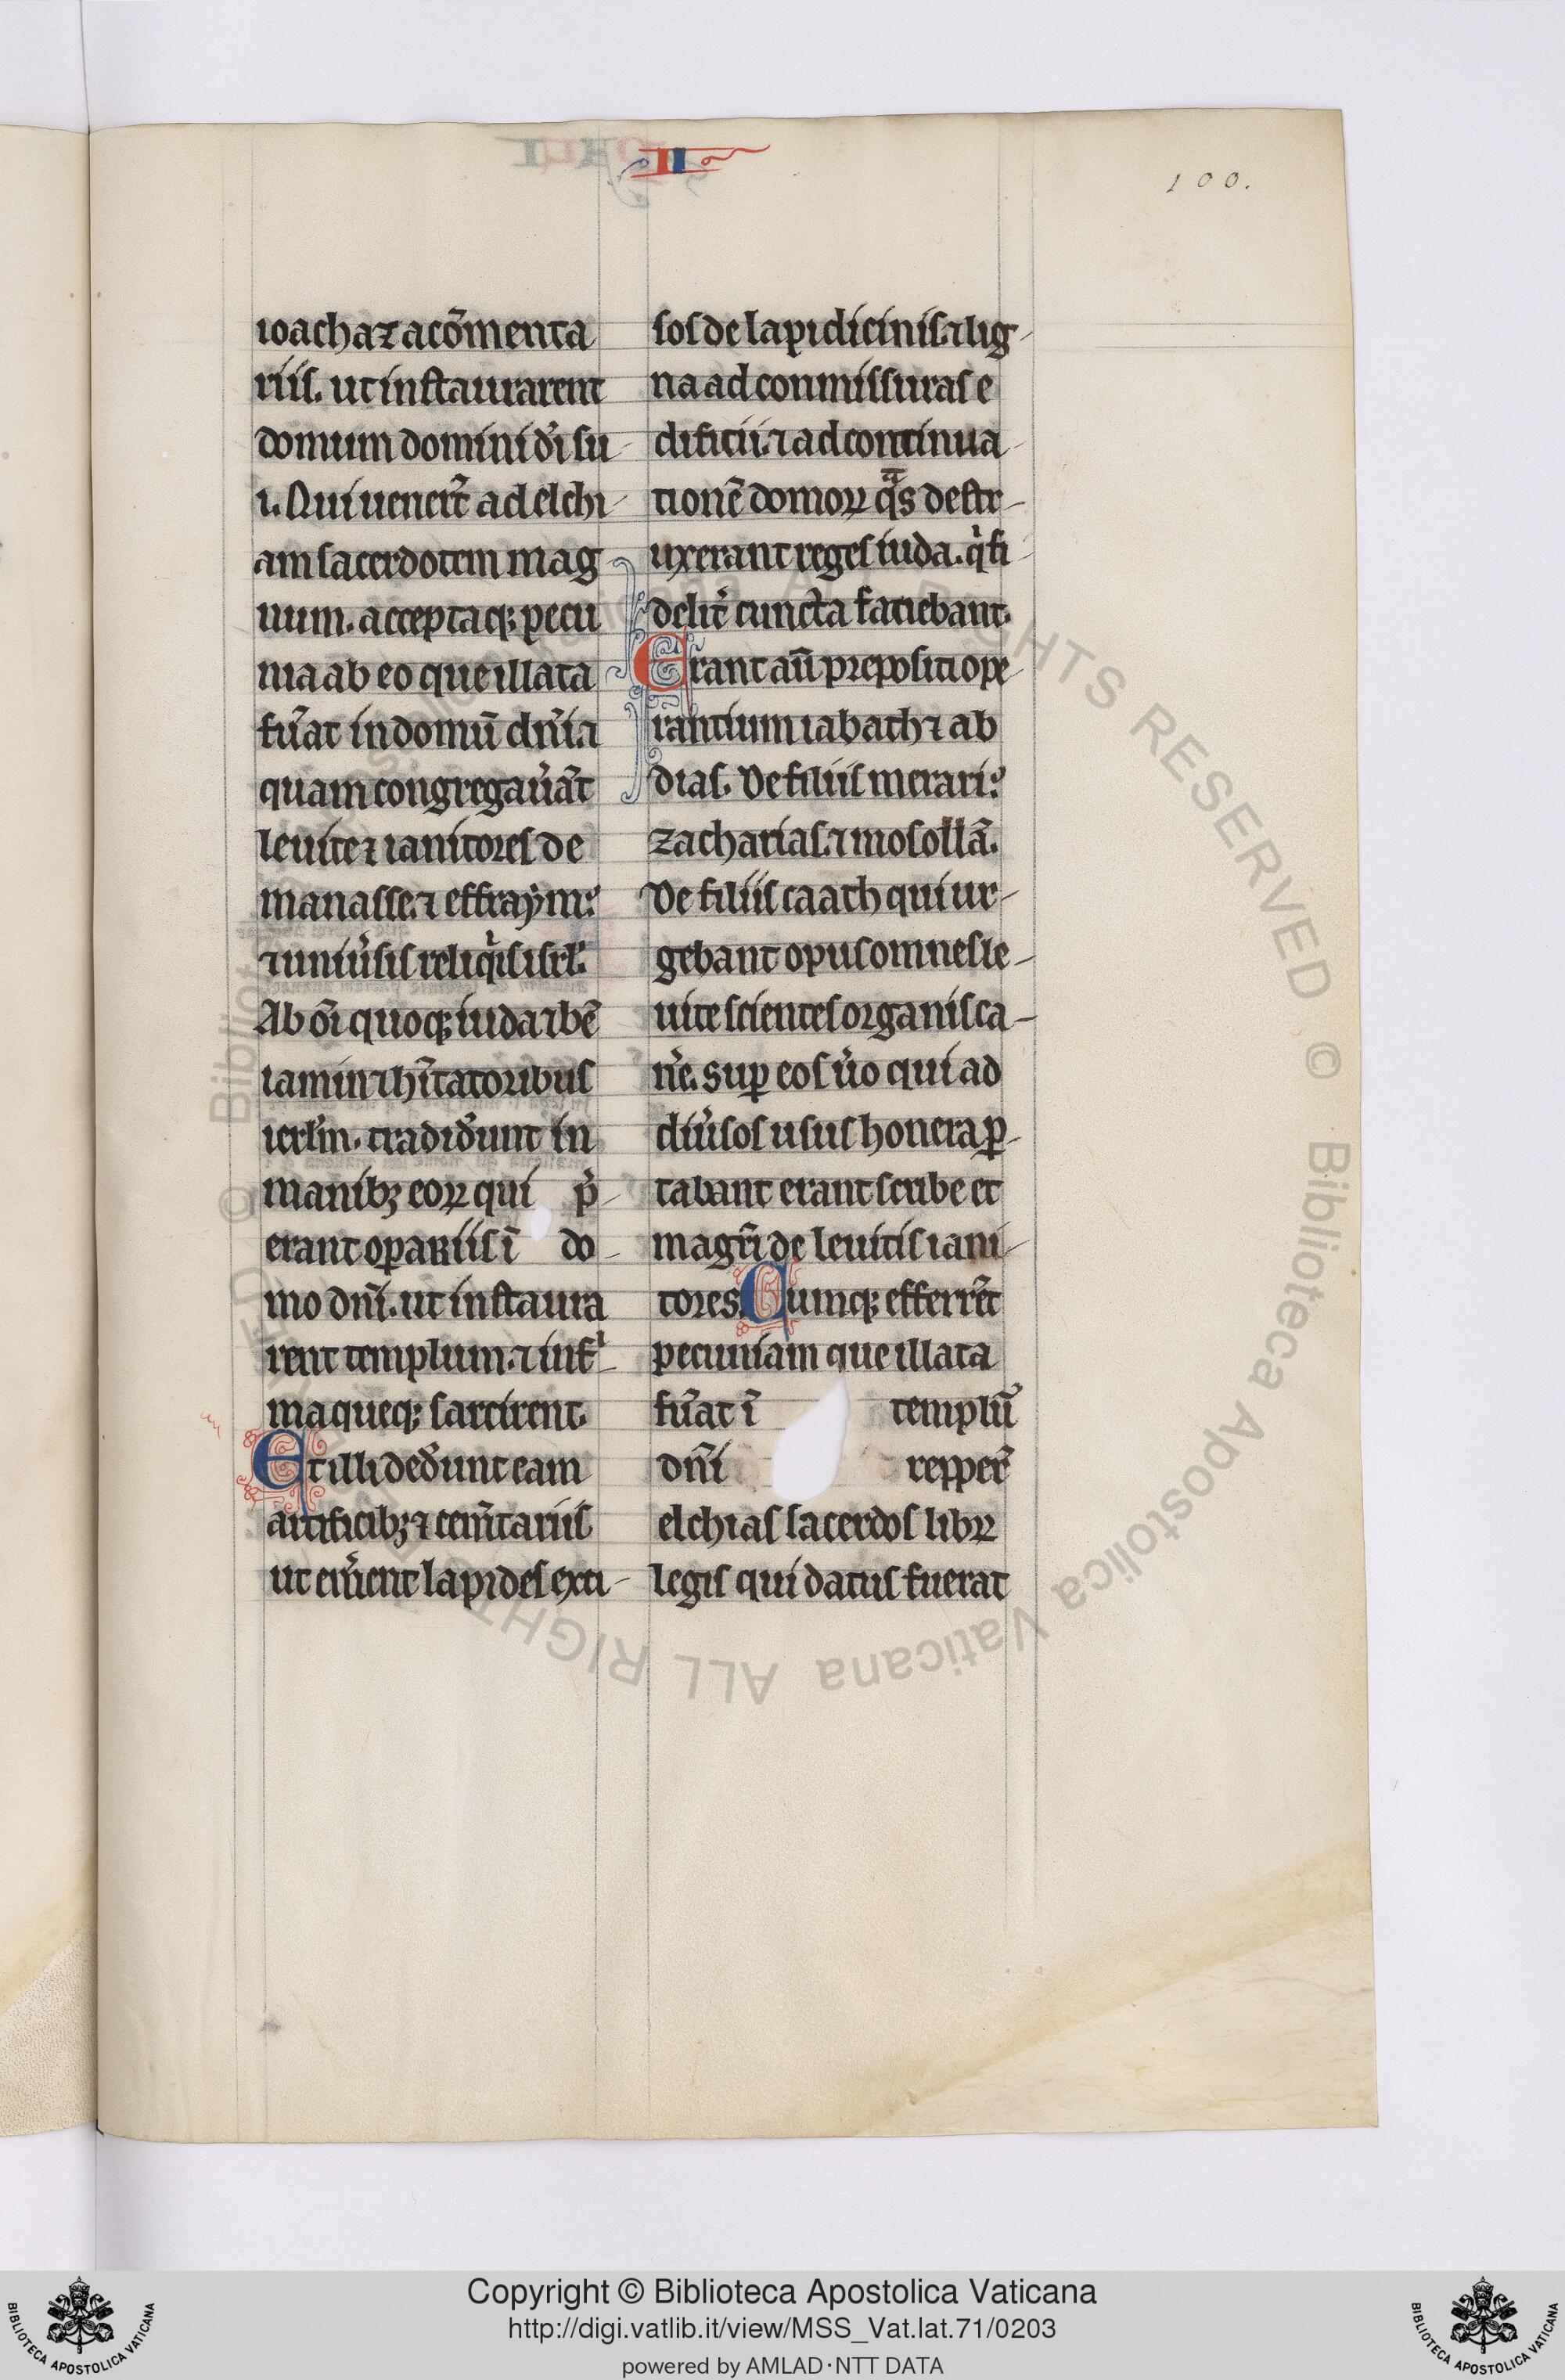 II
100.
ioachaz a cōmenta
riis. ut instaurarent
domum domini dī su-
i. Qui uenert̄ ad elchi-
am sacerdotem mag
num. acceptaq; pecu
nia ab eo que illata
fūat in domū dn̄i. ⁊
quam congregaūāt
leuite ⁊ ianitores de
manasse. ⁊ effraym:
⁊ uniūsis reliqͥs isrl.
Ab oı̄ quoq; iuda ⁊ bē
iamin ⁊ hı̄tatoribus
ierlm̄. tradid̄unt in
manibꝫ eoꝝ qui p̄-
erant oꝑariis ī do-
mo dn̄i. ut instaura
rent templum. ⁊ inf̄ͥ-
ma queq; sarcirent.
Et illi ded̄unt eam
artificibꝫ ⁊ cem̄tariis
ut em̄ent lapides exci-
sos de lapidicinis. ⁊ lig-
na ad conmissuras e
dificii. ⁊ ad continua-
tionē domoꝝ qᷓs destr-
uxerant reges iuda. qͥ fi-
delit̄ cuncta faciebant.
Erant aū prepositi ope-
rantium iabath ⁊ ab
dias. De filiis merari:
zacharias. ⁊ mosollā.
De filiis caath qui ur-
gebant opus omnes le-
uite scientes organis ca-
n̄e. suꝑ eos ūo qui ad
diūsos usus honera ꝑ-
tabant erant scribe et
magr̄i de leuitis iani-
tores. Cumq; efferrēt
pecuniam que illata
fūat ī templū
dn̄i repper̄
elchias sacerdos libꝝ
legis qui datus fuerat
© Biblioteca Apostolica Vaticana ALL RIGHTS RESERVED
Copyright © Biblioteca Apostolica Vaticana
http://digi.vatlib.it/view/MSS_Vat.lat.71/0203
powered by AMLAD·NTT DATA
BIBLIOTECA APOSTOLICA VATICANA
BIBLIOTECA APOSTOLICA VATICANA